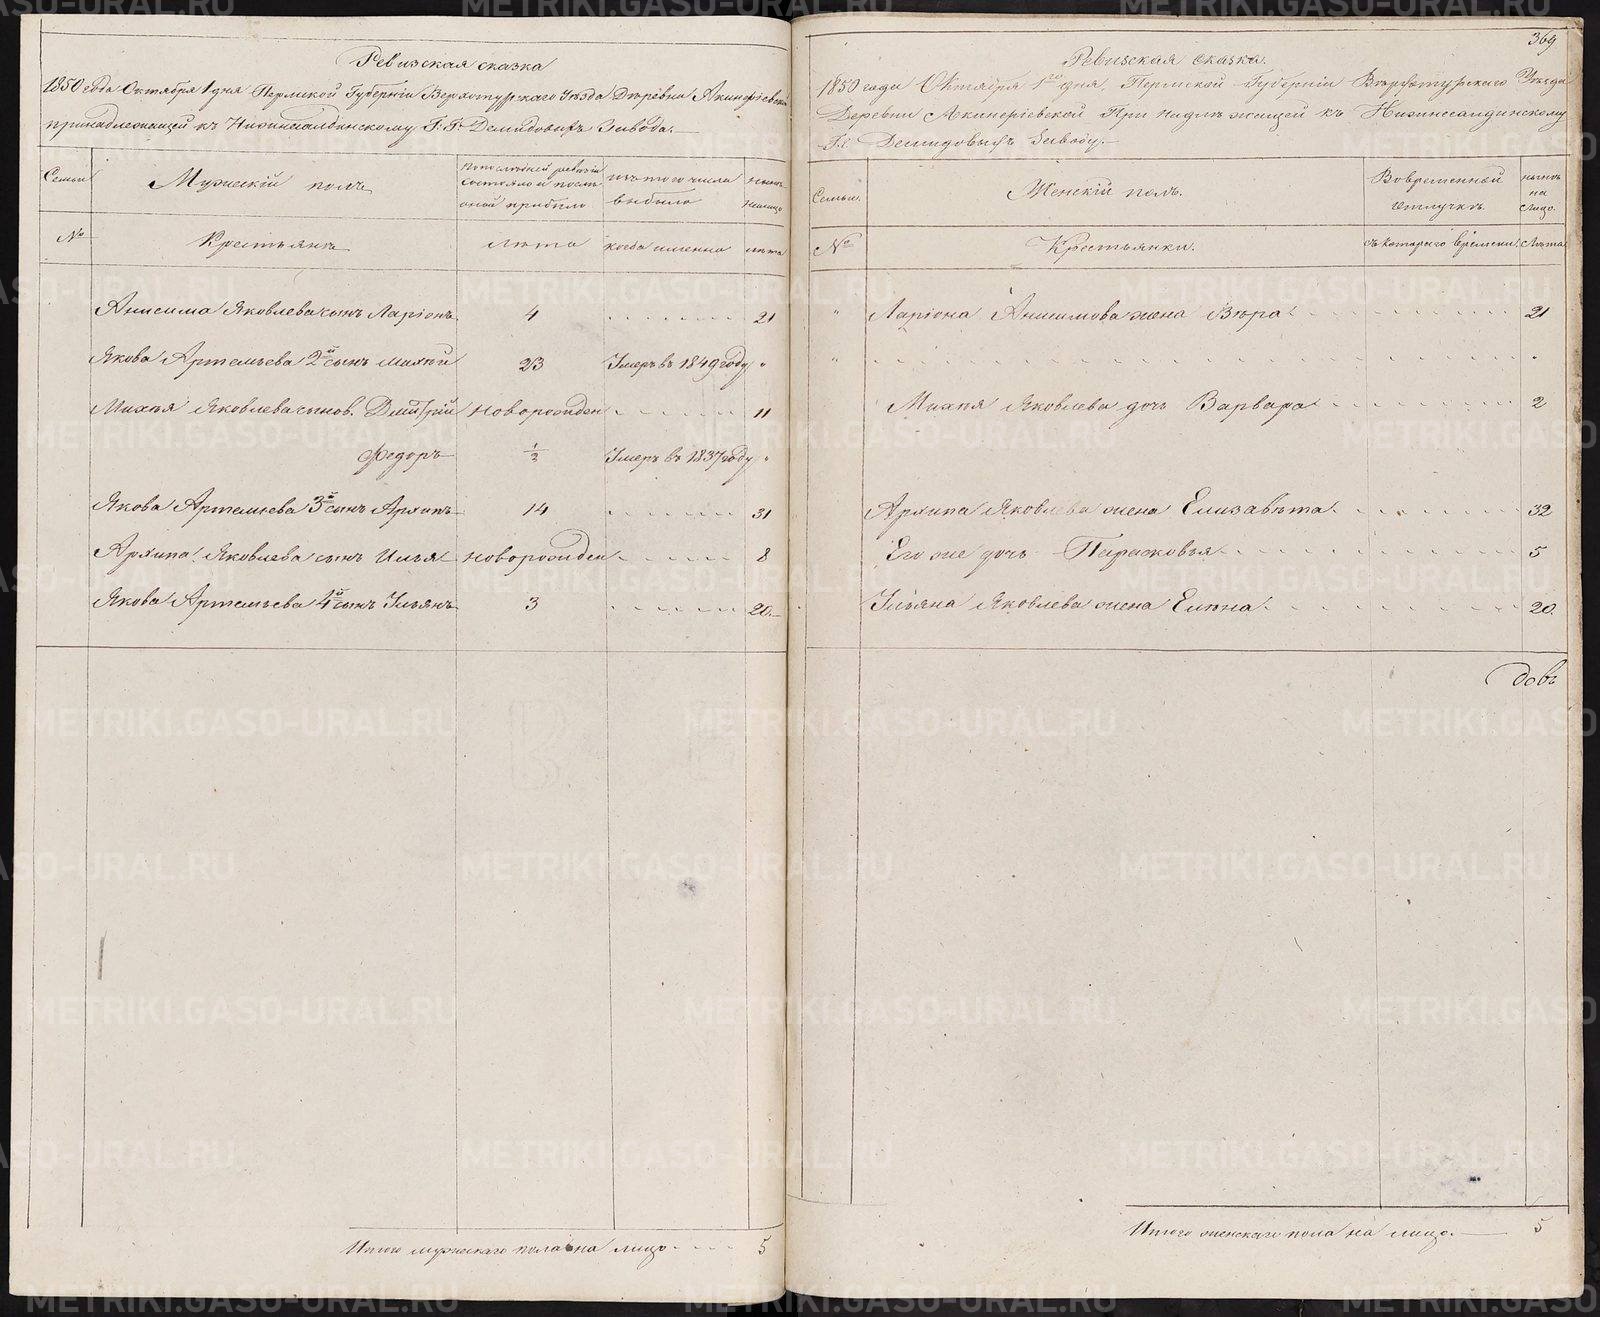 Ревизская сказка
1850 года Октября 1 дня Пермской Губерніи Верхотурскаго Уѣзда Деревни Акинфіевской
принадлежащей къ Нижнесалдинскому Г.Г. Демидовыхъ Заводу.
Семьи
Мужескій полъ
По последней ревизіи состояло и после оной прибыло
изъ того числа выбыло
нынѣ на лицо
№
Крестьянъ
лѣта
когда именно
лѣта
Анисима Яковлева сынъ Ларіонъ 4 21
Якова Артемьева 2й сынъ Михѣй 23 Умеръ въ 1849 году "
Михѣя Яковлева сынов. Дмитрій новорожден 11
Федоръ 1/2 Умеръ въ 1837 году "
Якова Артемьева 3й сынъ Архипъ 14 31
Архипа Яковлева сынъ Илья новорожден 8
Якова Артемьева 4й сынъ Ульянъ 3 20
Итого мужескаго пола на лицо 5
369
Ревизская сказка.
1850 года Октября 1го дня, Пермской Губерніи Верхотурскаго Уезда
Деревни Акинфіевской Принадлежащей къ Нижнесалдинскому
Г.г. Демидовыхъ Заводу.
Семьи.
Женскій полъ.
Во временной отлучкѣ
нынѣ на лицо.
№
Крестьянки.
съ котораго времени.
Лѣта
" Ларіона Анисимова жена Вѣра 21
" "
Михѣя Яковлева дочь Варвара 2
Архипа Яковлева жена Елизавѣта 32
Его же дочь Парасковья 5
Ульяна Яковлева жена Елѣна 20.
довъ
Итого женскаго пола на лицо. 5
METRIKI.GASO-URAL.RU